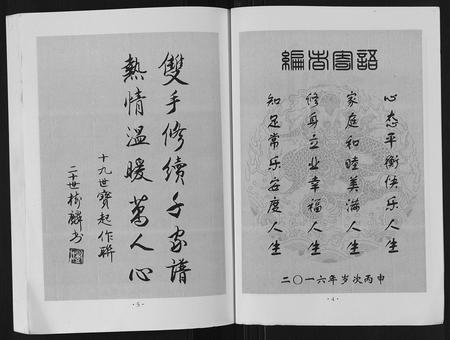 編者寄語
心态平衡快乐人生
家庭和睦美滿人生
修身立业幸福人生
知足常乐安度人生
二〇一六年岁次丙申
·4·
雙手修續千家譜
熱情溫暖萬人心
十九世寶起作聯
二十世樹麟书
·5·